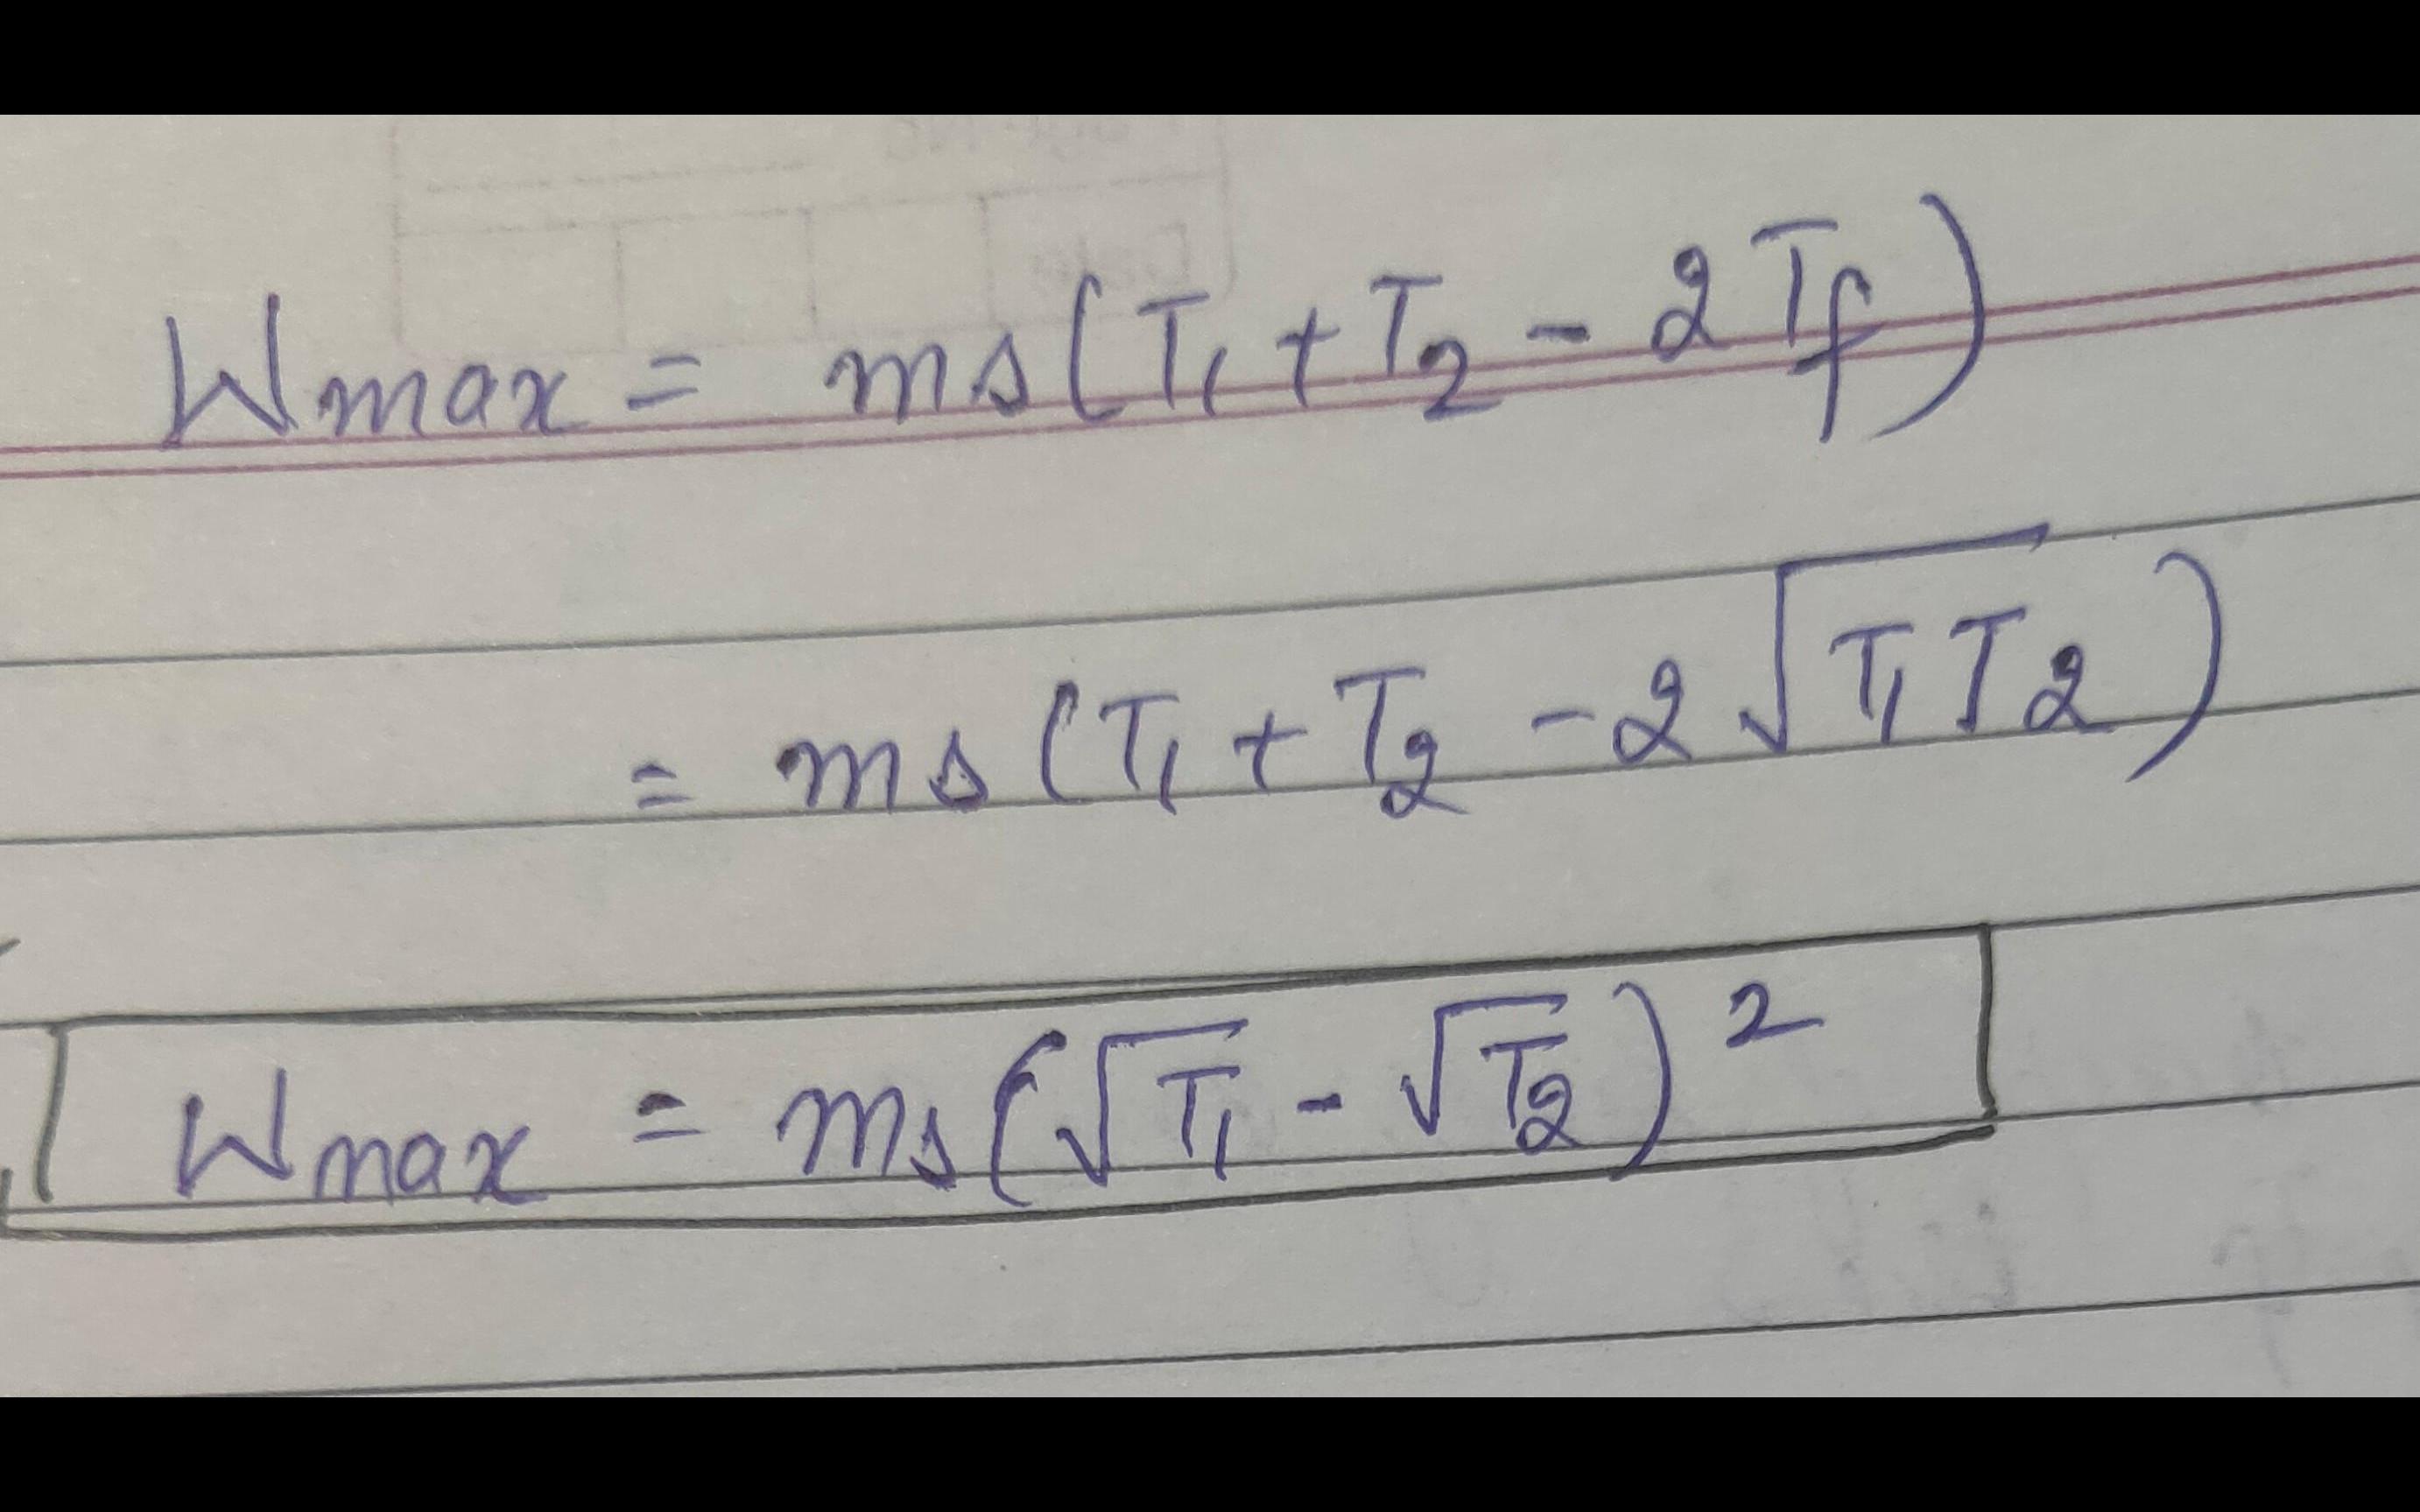 Wmax = ms(T₁ + T₂ - 2Tf)
= ms(T₁ + T₂ - 2√T₁T₂)
Wmax = ms(√T₁ - √T₂)²